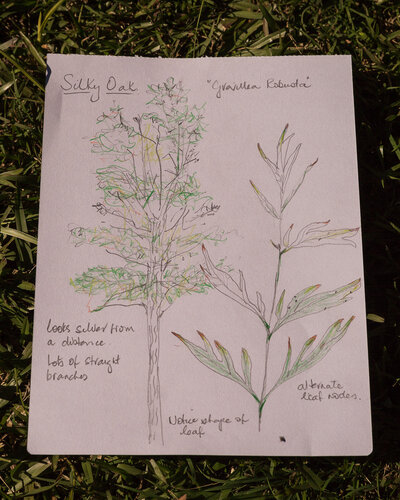 Silky Oak
"Gravillea Robusta"
Looks silver from
a distance.
Lots of straight
branches
Notice shape of
leaf
alternate
leaf nodes.